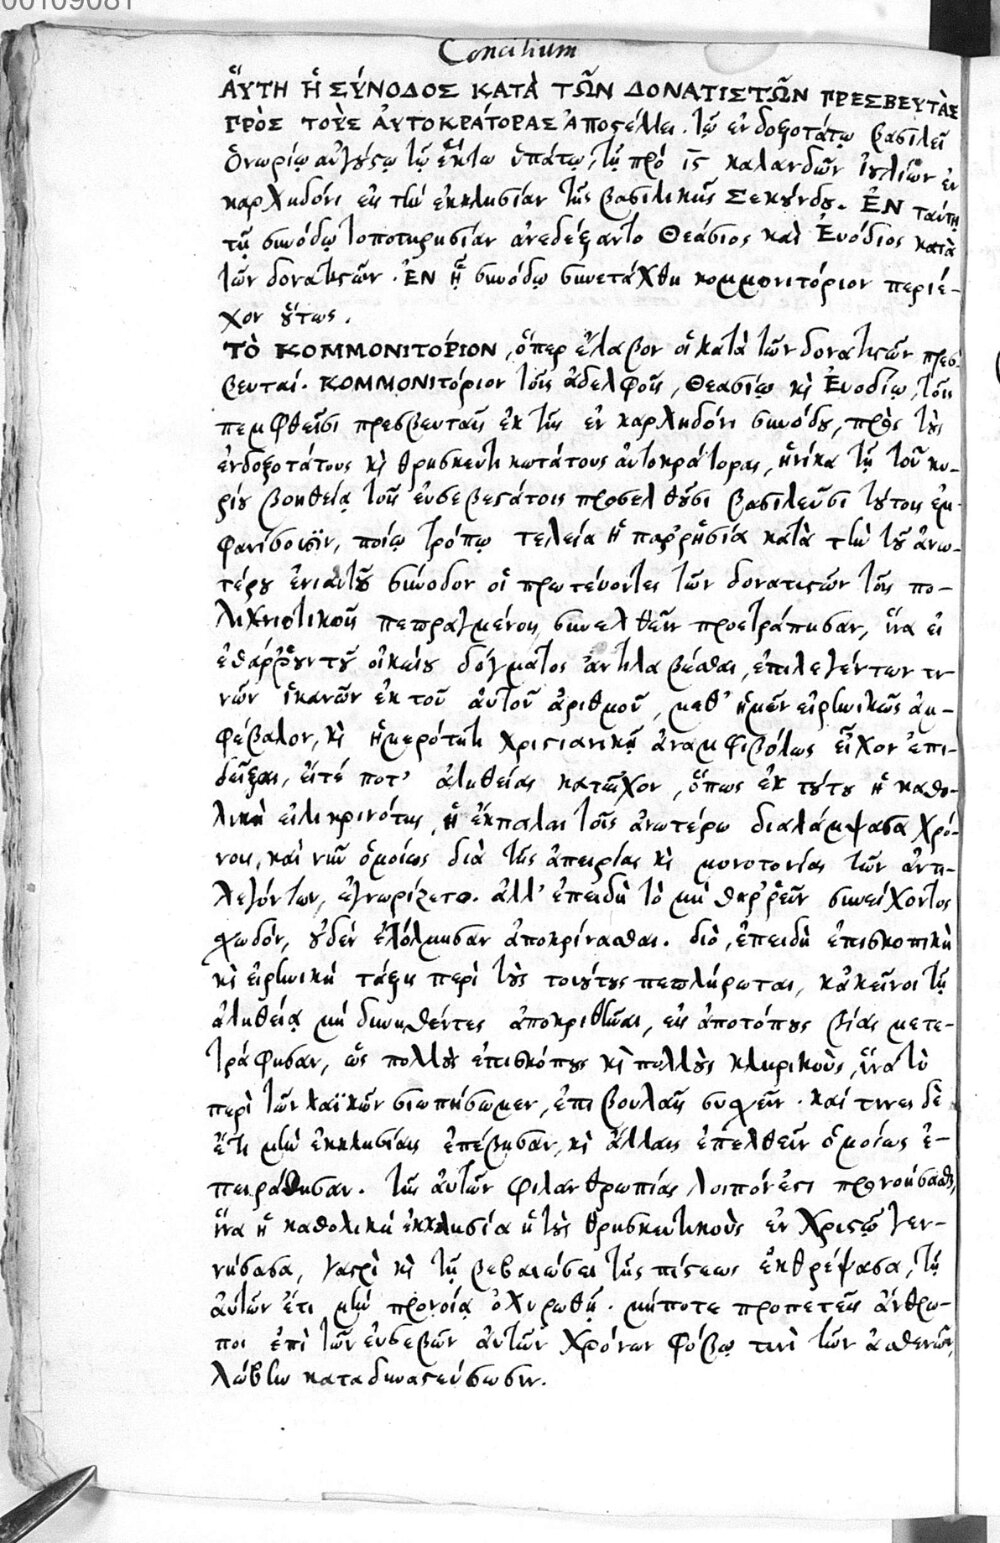 00109081
Concilium
ἍΥΤΗ Ἡ ΣΎΝΟΔΟΣ ΚΑΤᾺ ΤΩ͂Ν ΔΟΝΑΤΙΣΤΩ͂Ν ΠΡΕΣΒΕΥΤᾺΣ
ΠΡῸΣ ΤΟῪΣ ἈΥΤΟΚΡΆΤΟΡΑΣ Ἀποστέλλει. τῷ ἐνδοξοτάτῳ βασιλεῖ
Ὁνωρίῳ αὐγούστῳ τῷ ἕκτω ὑπάτῳ, τῇ πρό ις καλανδῶν ἰουλίων ἐν
καρχηδόνι εἰς τὴν ἐκκλησίαν τῆς βασιλικῆς Σεκούνδου. ἘΝ ταύτῃ
τῇ συνόδῳ τοποτηρησίαν ἀνεδέξαντο Θεάσιος καὶ Ἐυόδιος κατὰ
τῶν δονατιστῶν. ἘΝ ᾗ συνόδῳ συνετάχθη κομμονιτόριον περιέ-
χον οὕτως.
ΤῸ ΚΟΜΜΟΝΙΤΌΡΙΟΝ, ὅπερ ἔλαβον οἱ κατὰ τῶν δονατιστῶν πρεσ-
βευταί. ΚΟΜΜΟΝΙτόριον τοῖς ἀδελφοῖς, Θεασίῳ κὶ Ἐυοδίῳ, τοῖς
πεμφθεῖσι πρεσβευταῖς ἐκ τῆς ἐν καρχηδόνι συνόδου, πρὸς τοὺς
ἐνδοξοτάτους κὶ θρησκευτικωτάτους αὐτοκράτορας, ἡνίκα τῇ τοῦ κυ-
ρίου βοηθείᾳ τοῖς ἐυσεβεστάτοις προσελθοῦσι βασιλεῦσι τούτοις ἐμ-
φανίσουσιν, ποίῳ τρόπῳ τελεία ἡ παῤῥησία κατὰ τὴν τοῦ ἀνω-
τέρου ἐνιαυτοῦ σύνοδον οἱ πρωτεύοντες τῶν δονατιστῶν τοῖς πο-
λιχνιτικοῖς πεπραγμένοις συνελθεῖν προετράπησαν, ἵνα εἰ
ἐθάῤῥουν τοῦ οἰκείου δόγματος ἀντιλαβέσθαι, ἐπιλεγέντων τι-
νῶν ἱκανῶν ἐκ τοῦ αὐτοῦ ἀριθμοῦ, μεθ' ἡμῶν εἰρηνικῶς ἀμ-
φέβαλον, κὶ ἡμερότητι χριστιανικῇ ἀναμφιβόλως εἶχον ἐπι-
δεῖξαι, εἴτέ ποτ' ἀληθείας κατεῖχον, ὅπως ἐκ τούτου ἡ καθο-
λικὴ εἰλικρινότης, ἡ ἔκπαλαι τοῖς ἀνωτέρω διαλάμψασα χρό-
νοις, καὶ νῦν ὁμοίως διὰ τῆς ἀπειρίας κὶ μονοτονίας τῶν ἀντι-
λεγόντων, ἐγνωρίζετο. ἀλλ' ἐπειδὴ τὸ μὴ θαῤῥεῖν συνείχοντο
σχεδόν, οὐδέν ἐτόλμησαν ἀποκρίνασθαι. διὸ, ἐπειδὴ ἐπισκοπικὴ
κὶ εἰρηνική τάξις περὶ τοὺς τοιούτους πεπλήρωται, κἀκεῖνοι τῇ
ἀληθείᾳ μή δυνηθέντες ἀποκριθῆναι, εἰς ἀποτόπους βίας μετε-
τράφησαν, ὡς πολλοὺς ἐπισκόπους κὶ πολλοὺς κληρικοὺς, ἵνα τὸ
περὶ τῶν λαϊκῶν σιωπήσωμεν, ἐπιβουλαῖς συσχεῖν. καί τινες δὲ
ἔτι μὴν ἐκκλησίαις ἐπέβησαν, κὶ ἄλλαις ἐπελθεῖν ὁμοίως ἐ-
πειράθησαν. τῆς αὐτῶν φιλανθρωπίας λοιπόν ἐστι προνοήσασθαι,
ἵνα ἡ καθολική ἐκκλησία ἡ τοὺς θρησκευτικοὺς ἐν Χριστῷ γεν-
νήσασα, γαστρὶ κὶ τῇ βεβαιώσει τῆς πίστεως ἐκθρέψασα, τῇ
αὐτῶν ἔτι μὴν προνοίᾳ ὀχυρωθῇ. μήποτε προπετεῖς ἄνθρω-
ποι ἐπὶ τῶν ἐυσεβῶν αὐτῶν χρόνων φόβῳ τινὶ τῶν ἀσθενῶν,
λώβην καταδυναστεύσωσιν.